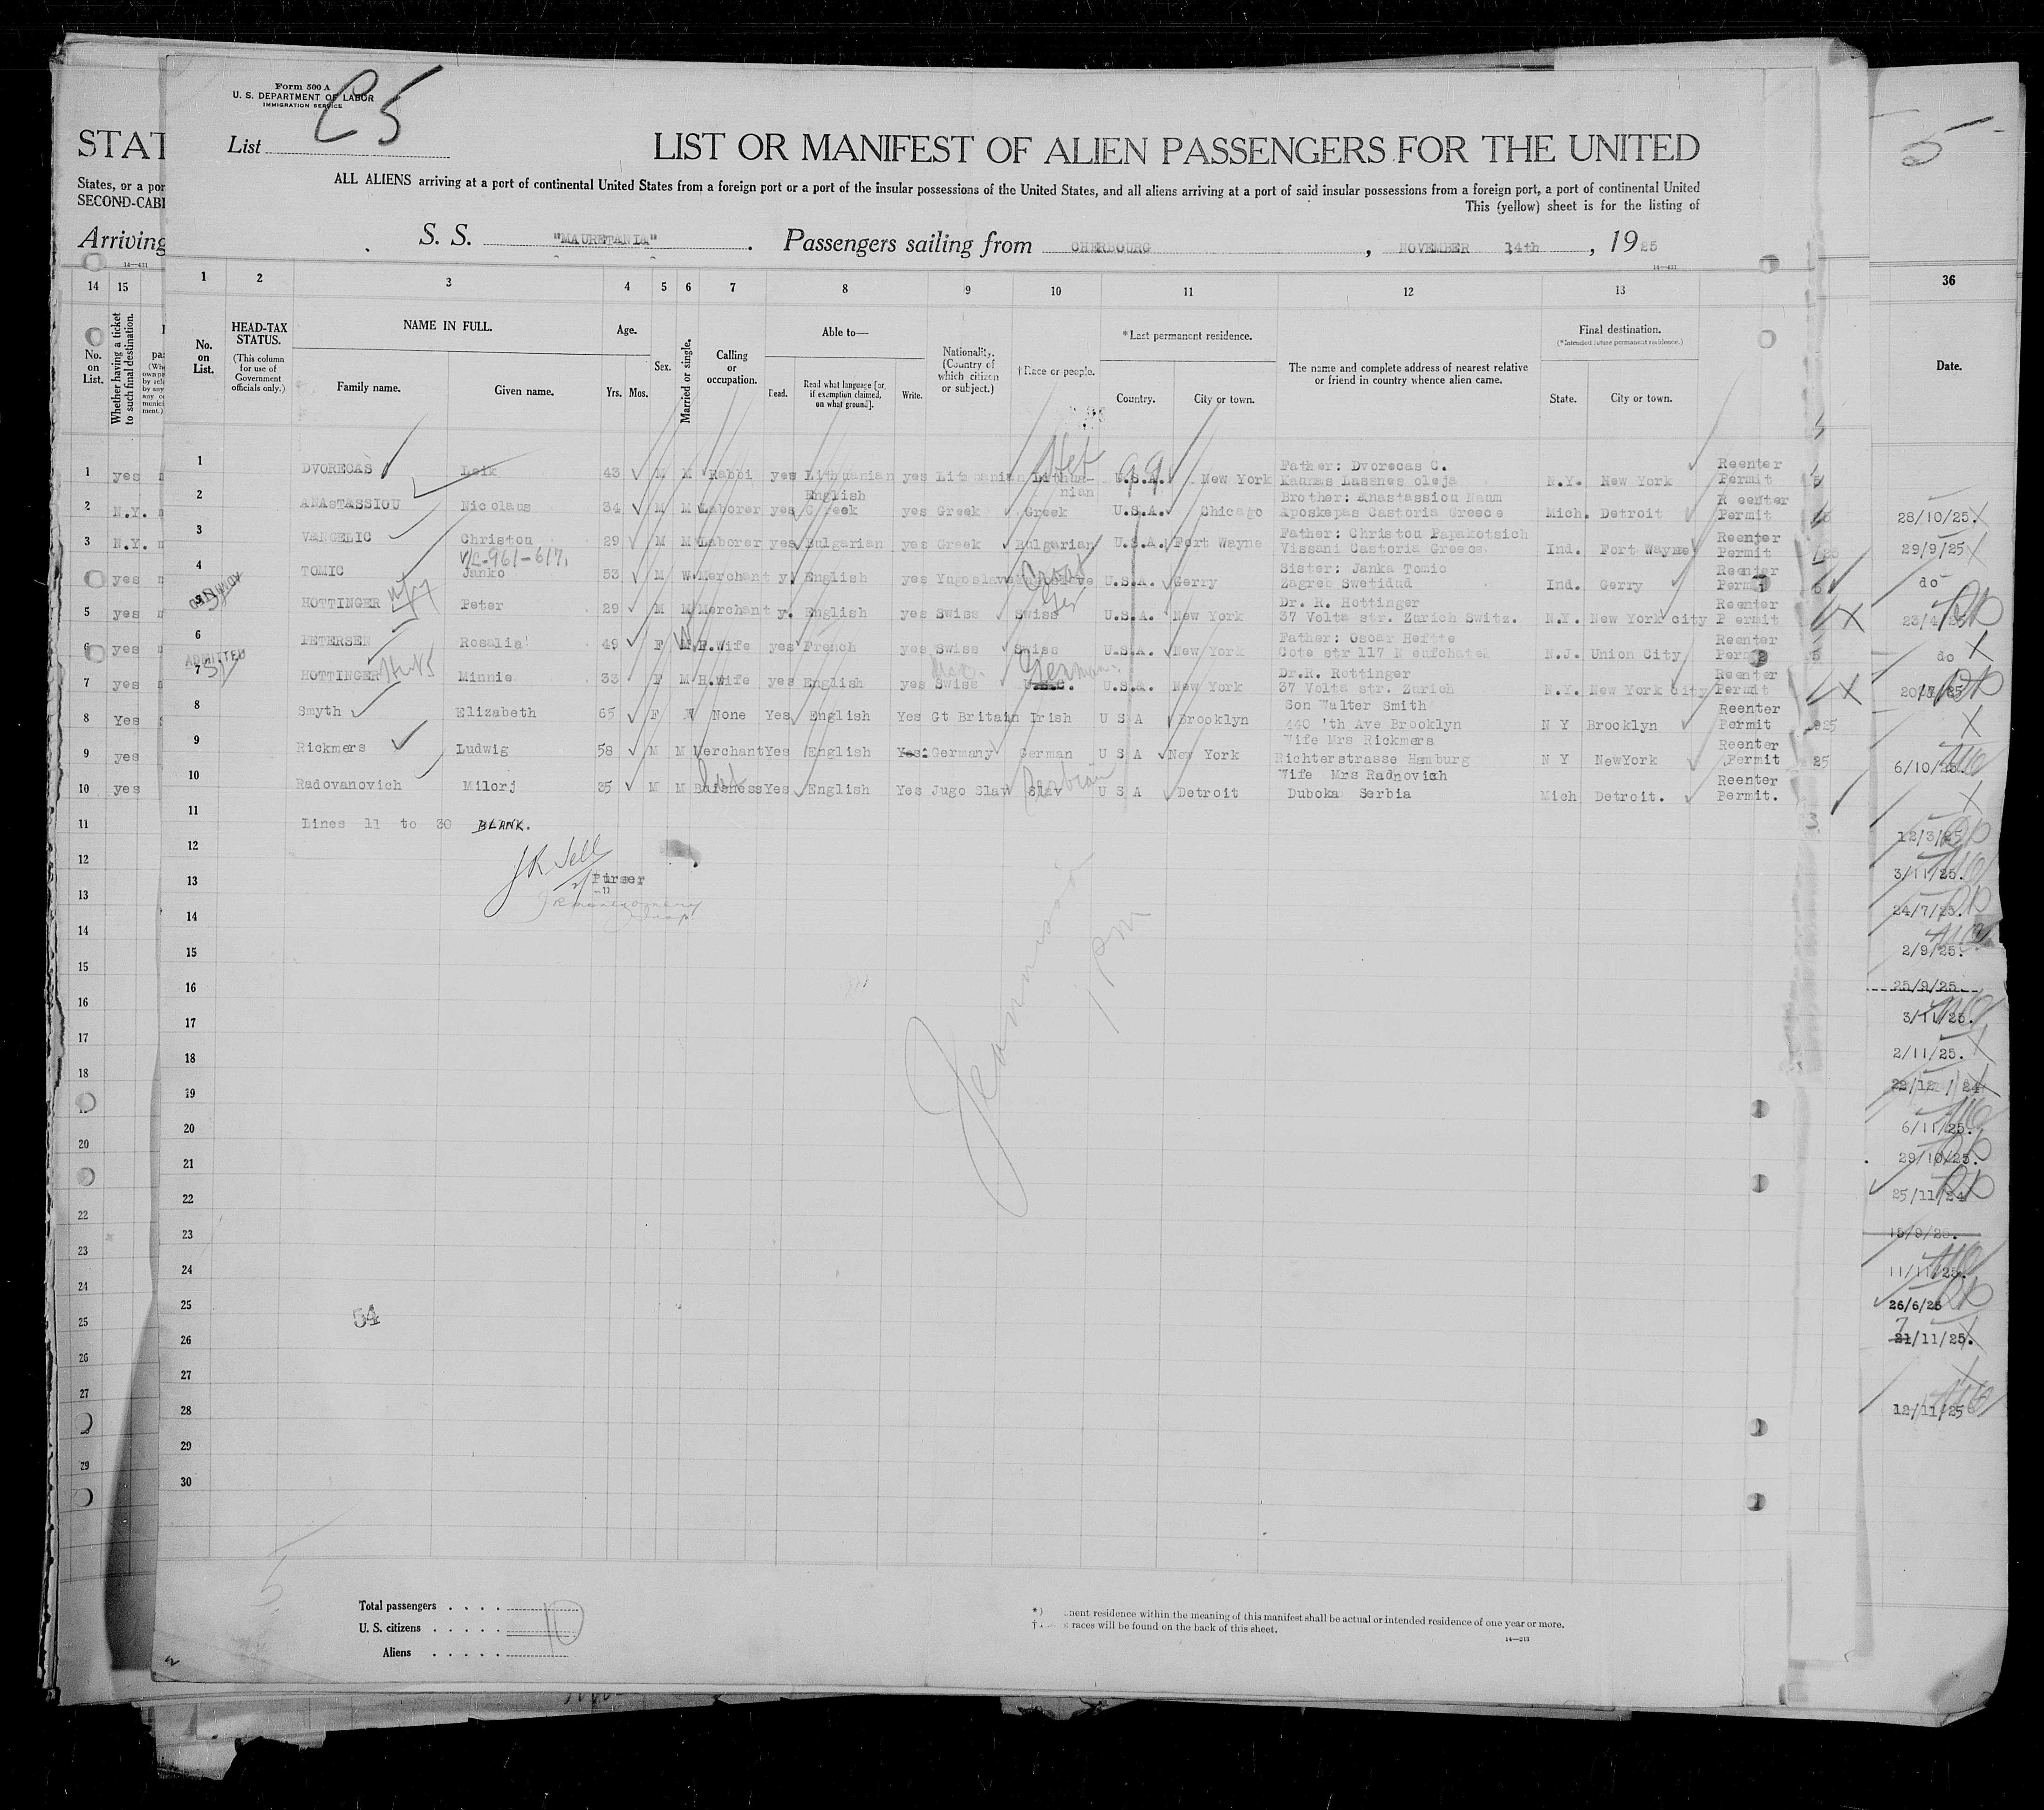 Form 500 A
U. S. DEPARTMENT OF LABOR
IMMIGRATION SERVICE
C5
5
STAT
List
LIST OR MANIFEST OF ALIEN PASSENGERS FOR THE UNITED
States, or a por
SECOND-CABI
ALL ALIENS arriving at a port of continental United States from a foreign port or a port of the insular possessions of the United States, and all aliens arriving at a port of said insular possessions from a foreign port, a port of continental United
This (yellow) sheet is for the listing of
Arriving
S. S. "MAURETANIA" . Passengers sailing from CHERBOURG , NOVEMBER 14th , 1925
14 15 1 2 3 4 5 6 7 8 9 10 11 12 13 36
No. on List.
Whether having a ticket to such final destination.
No. on List.
HEAD-TAX STATUS.
(This column for use of Government officials only.)
NAME IN FULL.
Family name. Given name.
Age.
Yrs. Mos.
Sex.
Married or single.
Calling or occupation.
Able to—
Read. Read what language [or, if exemption claimed, on what ground]. Write.
Nationality. (Country of which citizen or subject.)
†Race or people.
*Last permanent residence.
Country. City or town.
The name and complete address of nearest relative or friend in country whence alien came.
Final destination.
(*Intended future permanent residence.)
State. City or town.
Date.
1 DVORECAS Leik 43 M M Rabbi yes Lithuanian English yes Lithuanian Lithuanian Heb U.S.A. New York Father: Dvorecas C. Kaunas Lasanes oleja N.Y. New York Reenter Permit
2 ANASTASSIOU Nicolaus 34 M M Laborer yes Greek yes Greek Greek U.S.A. Chicago Brother: Anastassiou Naum Aposkepas Castoria Greece Mich. Detroit R eenter Permit
3 VANGELIC Christou 29 M M Laborer yes Bulgarian yes Greek Bulgarian U.S.A. Fort Wayne Father: Christou Papakotsich Vissani Castoria Greece. Ind. Fort Wayne Reenter Permit
V/L-961-617.
4 TOMIC Janko 53 M W Merchant y. English yes Yugoslave Croat U.S.A. Gerry Sister: Janka Tomic Zagreb Swetidud Ind. Gerry Reenter Permit
5 HOTTINGER Peter 29 M M Merchant y. English yes Swiss Swiss Ger U.S.A. New York Dr. R. Hottinger 37 Volta str. Zurich Switz. N.Y. New York city Reenter Permit
6 PETERSEN Rosalia 49 F H.Wife yes French yes Swiss Swiss U.S.A. New York Father: Oscar Heftte Cote str 117 N eufchatel N.J. Union City Reenter Permit
ADMITTED
7 HOTTINGER Minnie 33 F M H.Wife yes English yes Swiss U.S.C. German U.S.A. New York Dr.R. Rottinger 37 Volta str. Zurich N.Y. New York city Reenter Permit
8 Smyth Elizabeth 65 F None Yes English Yes Gt Britain Irish U S A Brooklyn Son Walter Smith 440 'th Ave Brooklyn N Y Brooklyn Reenter Permit
9 Rickmers Ludwig 58 M M Merchant Yes English Yes Germany German U S A New York Wife Mrs Rickmers Richterstrasse Hamburg N Y NewYork Reenter Permit
10 Radovanovich Milorj 35 M M Buisness Yes English Yes Jugo Slav Slav Serbian U S A Detroit Wife Mrs Radnovich Duboka Serbia Mich Detroit. Reenter Permit.
11 Lines 11 to 30 BLANK.
12
13 Purser
14
15
16
17
18
19
20
21
22
23
24
25
26
27
28
29
30
1 yes
2 N.Y.
3 N.Y.
yes
5 yes
6 yes
7 yes
8 Yes
9 yes
10 yes
11
12
13
14
15
16
17
18
20
22
23
24
25
26
27
29
1 PM
54
28/10/25.
29/9/25
do
do
6/10/25.
12/3/25
3/11/25.
24/7/25.
2/9/25.
25/9/25.
3/11/25.
2/11/25.
22/12/24
6/11/25.
29/10/25.
25/11/24
15/9/25.
11/11/25.
26/6/25
21/11/25.
7
12/11/25
Total passengers . . . . 10
U. S. citizens . . . . .
Aliens . . . . .
nent residence within the meaning of this manifest shall be actual or intended residence of one year or more.
races will be found on the back of this sheet.
14—213